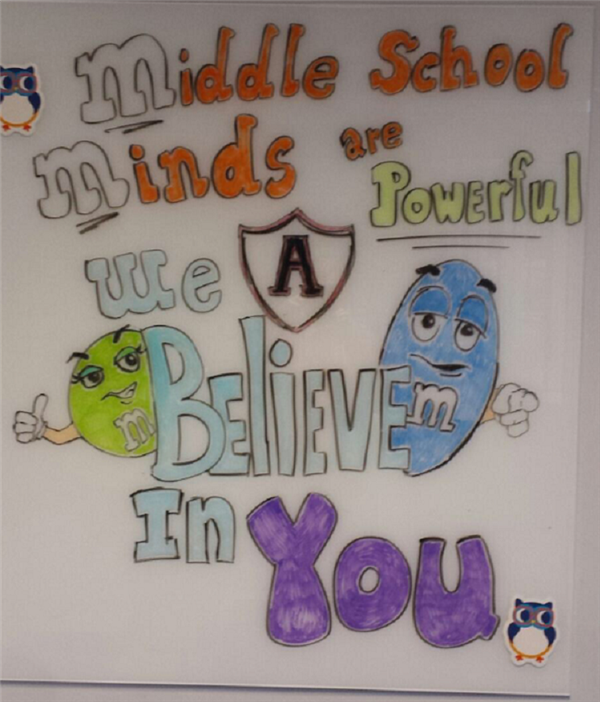 Middle School
Minds are
Powerful
We A
m Believe m
In You